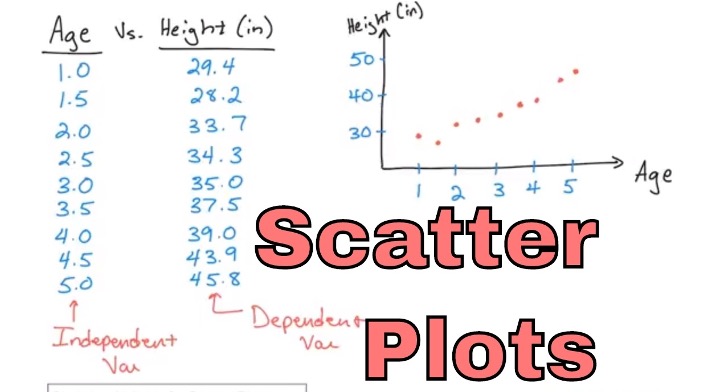 Age Vs. Height (in)
1.0 29.4
1.5 28.2
2.0 33.7
2.5 34.3
3.0 35.0
3.5 37.5
4.0 39.0
4.5 43.9
5.0 45.8
Independent
Var
Dependent
Var
Height (in)
50
40
30
1 2 3 4 5
Age
Scatter
Plots